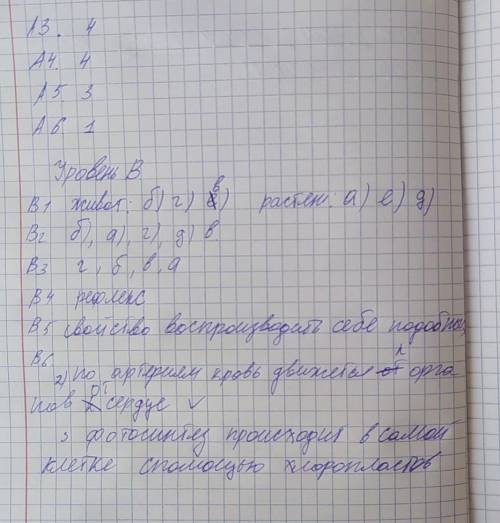 А3. 4
А4. 4
А5 3
А6. 1
Уровень В
В1 живот: б) г) в) растен: а) е) д)
В2 б), а), г), д) в
В3 г, б, в, а
В4 рефлекс
В5 свойство воспроизводить себе подобных
В6
2) по артериям кровь движется к орга
нов от сердце ✓
3 фотосинтез происходит в самой
клетке спомощью хлоропластов